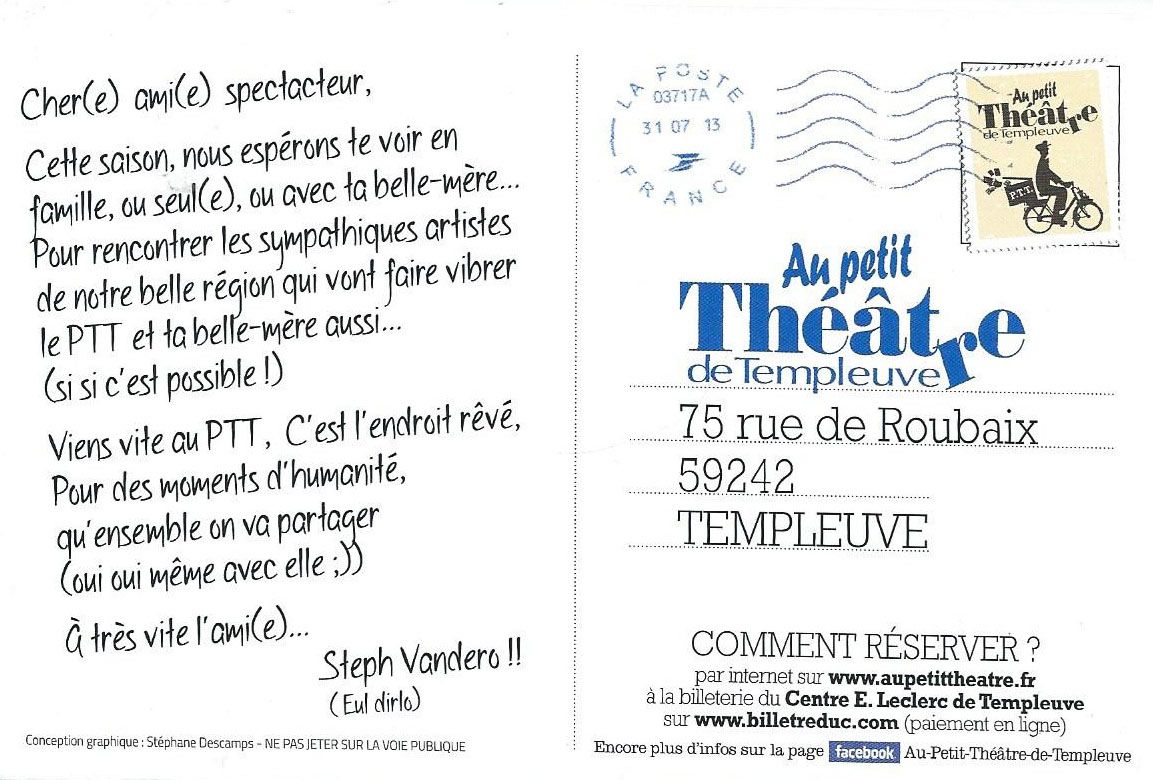 Cher(e) ami(e) spectacteur,
Cette saison, nous espérons te voir en
famille, ou seul(e), ou avec ta belle-mère...
Pour rencontrer les sympathiques artistes
de notre belle région qui vont faire vibrer
le PTT et ta belle-mère aussi...
(si si c'est possible !)
Viens vite au PTT, C'est l'endroit rêvé,
Pour des moments d'humanité,
qu'ensemble on va partager
(oui oui même avec elle ;))
À très vite l'ami(e)...
Steph Vandero !!
(Eul dirlo)
Conception graphique : Stéphane Descamps - NE PAS JETER SUR LA VOIE PUBLIQUE
LA POSTE
03717A
31 07 13
FRANCE
Au petit
Théâtre
de Templeuve
P.T.T.
Au petit
Théâtre
de Templeuve
75 rue de Roubaix
59242
TEMPLEUVE
COMMENT RÉSERVER ?
par internet sur www.aupetittheatre.fr
à la billeterie du Centre E. Leclerc de Templeuve
sur www.billetreduc.com (paiement en ligne)
Encore plus d'infos sur la page facebook Au-Petit-Théâtre-de-Templeuve